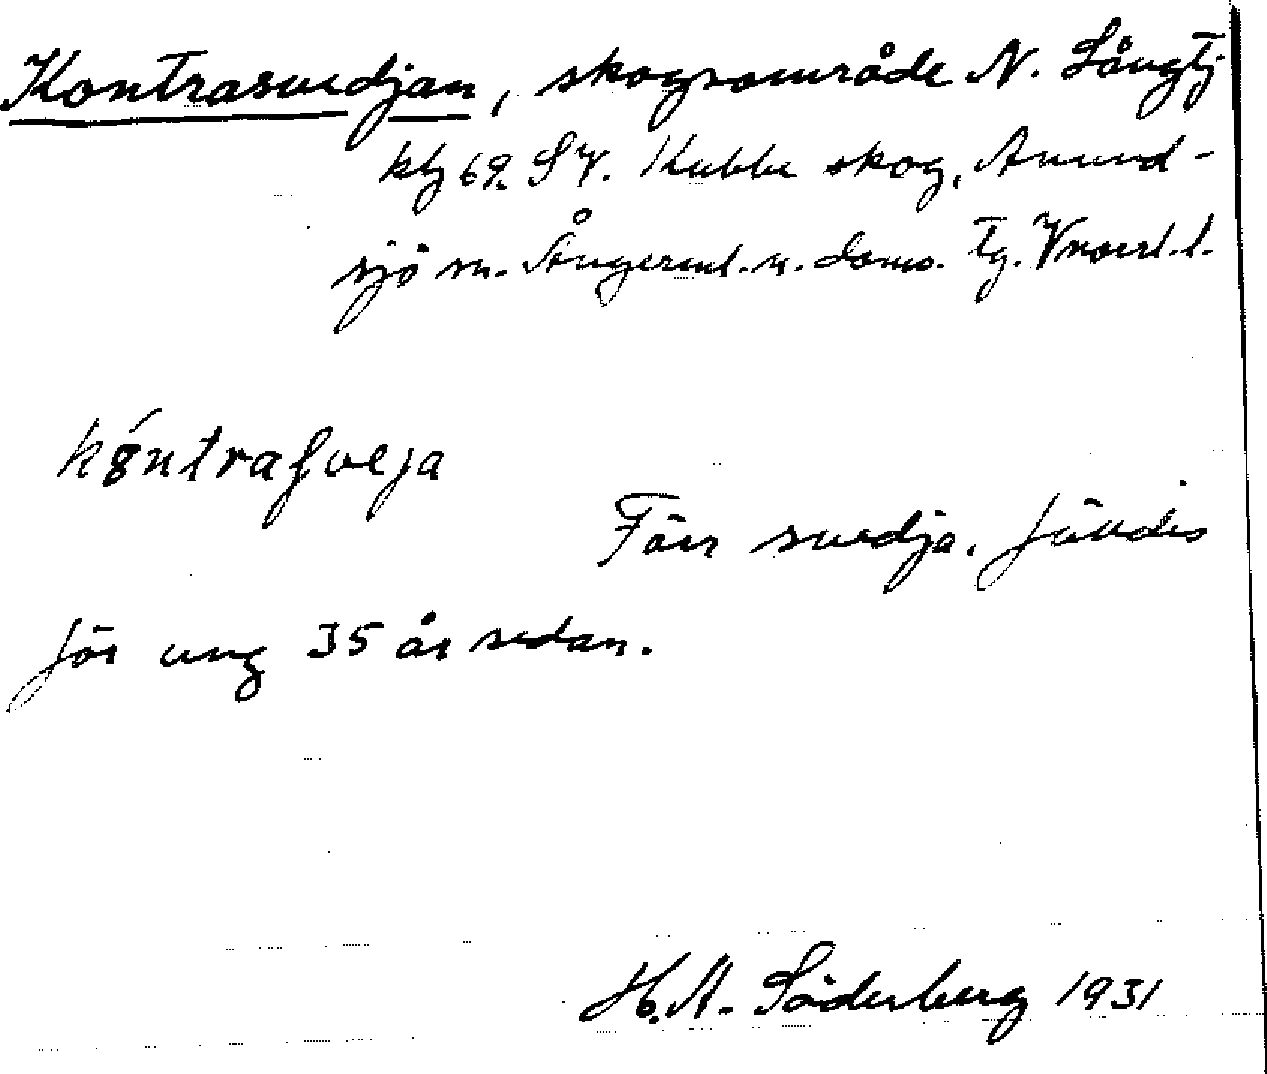 Kontrasvedjan, skogsområde N. Långtj
klj 69. SV. Kubbe skog, Anund-
sjö sn. Ångerml. n. doms. Tg. Vnorrl. l.
kóntrasveja
Förr svedja, fälldes
för ung 35 år sedan.
H. A. Söderberg 1931